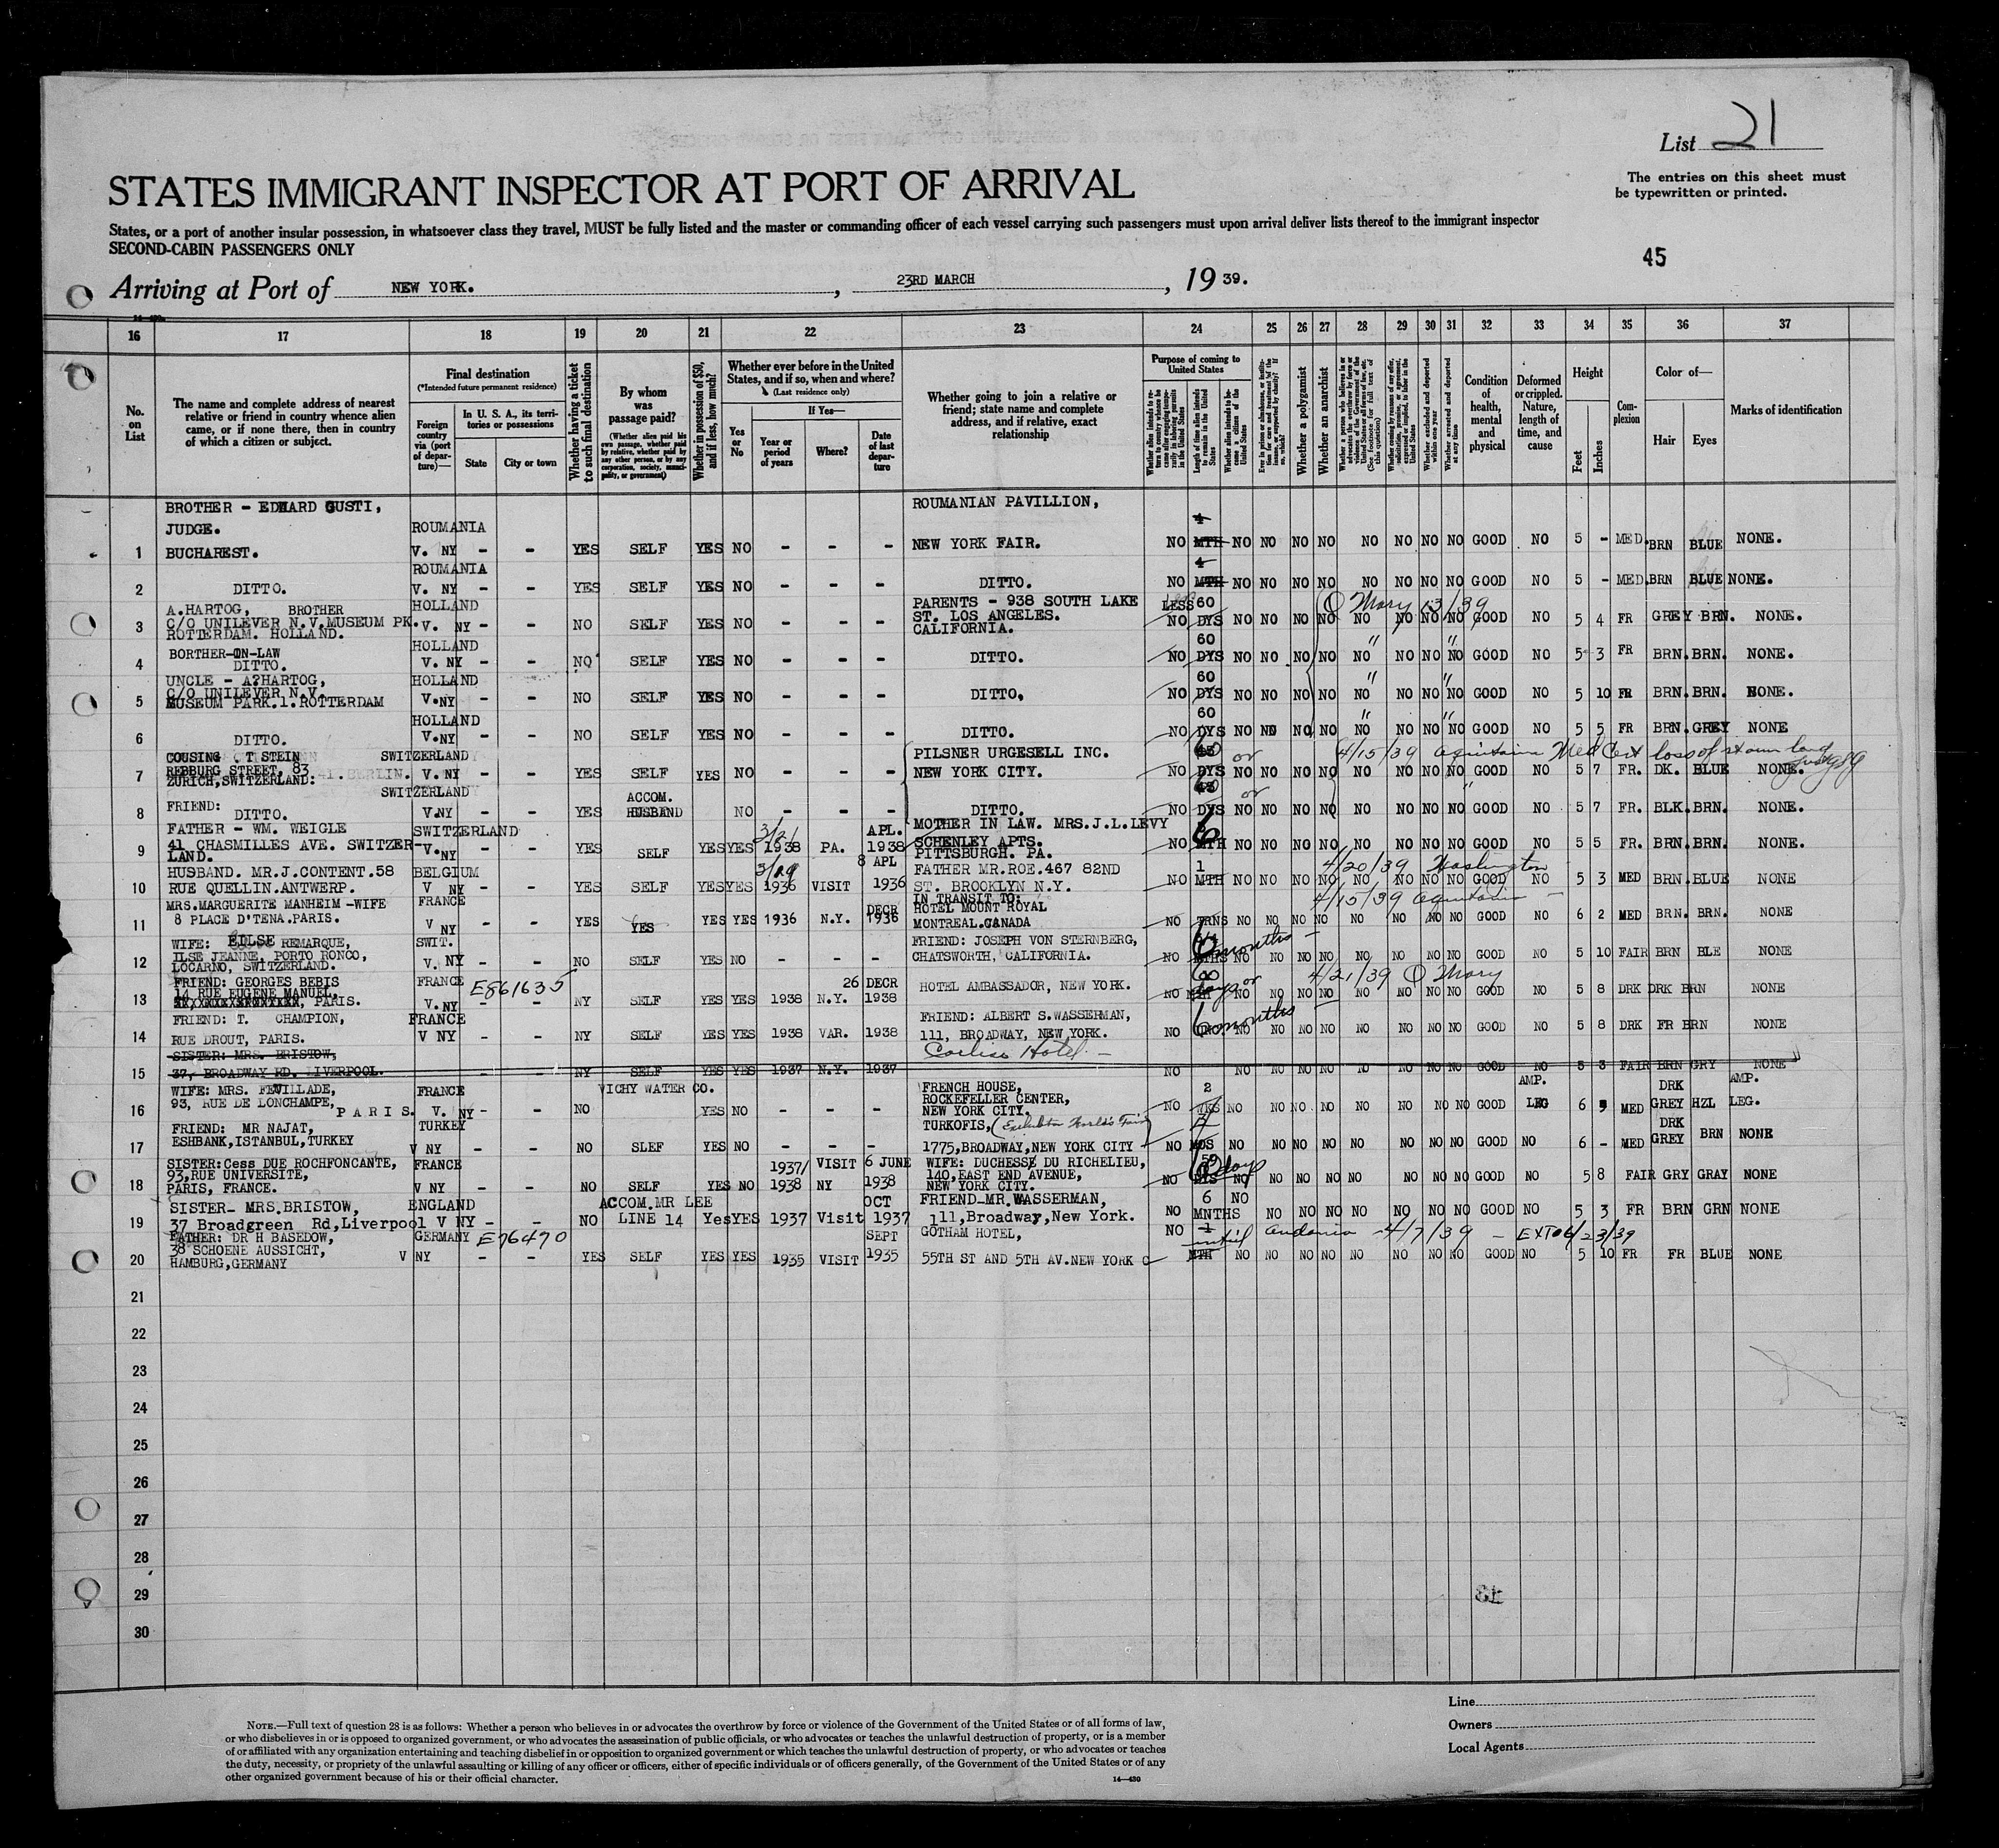 List 21
The entries on this sheet must
be typewritten or printed.
STATES IMMIGRANT INSPECTOR AT PORT OF ARRIVAL
States, or a port of another insular possession, in whatsoever class they travel, MUST be fully listed and the master or commanding officer of each vessel carrying such passengers must upon arrival deliver lists thereof to the immigrant inspector
SECOND-CABIN PASSENGERS ONLY
45
Arriving at Port of NEW YORK. , 23RD MARCH , 19 39.
16 17 18 19 20 21 22 23 24 25 26 27 28 29 30 31 32 33 34 35 36 37
No. on List
The name and complete address of nearest relative or friend in country whence alien came, or if none there, then in country of which a citizen or subject.
Final destination
(*Intended future permanent residence)
Foreign country via (port of departure)—
In U. S. A., its territories or possessions
State City or town
Whether having a ticket to such final destination
By whom was passage paid?
(Whether alien paid his own passage, whether paid by relative, whether paid by any other person, or by any corporation, society, municipality, or government)
Whether in possession of $50, and if less, how much?
Whether ever before in the United States, and if so, when and where?
(Last residence only)
Yes or No
If Yes—
Year or period of years
Where?
Date of last departure
Whether going to join a relative or friend; state name and complete address, and if relative, exact relationship
Purpose of coming to United States
Length of time alien intends to remain in the United States
Whether alien intends to become a citizen of the United States
Whether a polygamist
Whether an anarchist
Whether excluded and deported within one year
Whether arrested and deported at any time
Condition of health, mental and physical
Deformed or crippled. Nature, length of time, and cause
Height
Feet Inches
Complexion
Color of—
Hair Eyes
Marks of identification
BROTHER - EDWARD GUSTI, ROUMANIAN PAVILLION,
JUDGE. ROUMANIA 4
1 BUCHAREST. V. NY - - YES SELF YES NO - - - NEW YORK FAIR. NO MTH NO NO NO NO NO NO NO NO GOOD NO 5 - MED. BRN BLUE NONE.
ROUMANIA 4
2 DITTO. V. NY - - YES SELF YES NO - - - DITTO. NO MTH NO NO NO NO NO NO NO NO GOOD NO 5 - MED. BRN BLUE NONE.
A.HARTOG, BROTHER HOLLAND PARENTS - 938 SOUTH LAKE LESS 60 Q Mary 13/39
3 C/O UNILEVER N.V.MUSEUM PK. V. NY - - NO SELF YES NO - - - ST. LOS ANGELES. NO DYS NO NO NO NO NO NO NO NO GOOD NO 5 4 FR GREY BRN. NONE.
ROTTERDAM. HOLLAND. CALIFORNIA.
BORTHER-ON-LAW HOLLAND 60 " "
4 DITTO. V. NY - - NO SELF YES NO - - - DITTO. NO DYS NO NO NO NO NO NO NO NO GOOD NO 5 3 FR BRN. BRN. NONE.
UNCLE - A?HARTOG, HOLLAND 60 " "
C/O UNILEVER N.V.
5 MUSEUM PARK.1.ROTTERDAM V.NY - - NO SELF YES NO - - - DITTO, NO DYS NO NO NO NO NO NO NO NO GOOD NO 5 10 FR BRN. BRN. NONE.
HOLLAND 60 " "
6 DITTO. V.NY - - NO SELF YES NO - - - DITTO. NO DYS NO NO NO NO NO NO NO NO GOOD NO 5 5 FR BRN. GREY NONE
COUSING T STEIN SWITZERLAND PILSNER URGESELL INC. 60 or 4/15/39 Aquitania Med Cert loss of
7 REBBURG STREET, 83 V. NY - - YES SELF YES NO - - - NEW YORK CITY. NO DYS NO NO NO NO NO NO NO NO GOOD NO 5 7 FR. DK. BLUE NONE.
ZURICH,SWITZERLAND:
SWITZERLAND ACCOM. or "
8 FRIEND: DITTO. V.NY - - YES HUSBAND NO - - - DITTO. NO DYS NO NO NO NO NO NO NO NO GOOD NO 5 7 FR. BLK. BRN. NONE.
FATHER - WM. WEIGLE SWITZERLAND 3/21 APL. MOTHER IN LAW. MRS.J.L.LEVY 6
9 41 CHASMILLES AVE. SWITZER- V. NY - - YES SELF YES YES 1938 PA. 1938 SCHENLEY APTS. NO MTH NO NO NO NO NO NO NO NO GOOD NO 5 5 FR. BRN. BRN. NONE.
LAND. PITTSBURGH. PA.
HUSBAND. MR.J.CONTENT.58 BELGIUM 3/19 8 APL FATHER MR.ROE.467 82ND 1 4/20/39 Washington
10 RUE QUELLIN.ANTWERP. V NY - - YES SELF YES YES 1936 VISIT 1936 ST. BROOKLYN N.Y. NO MTH NO NO NO NO NO NO NO NO GOOD NO 5 3 MED BRN. BLUE NONE
MRS.MARGUERITE MANHEIM -WIFE FRANCE DECR IN TRANSIT TO: 4/15/39 Aquitania -
11 8 PLACE D'TENA.PARIS. V NY - - YES YES YES YES 1936 N.Y. 1936 HOTEL MOUNT ROYAL NO TRNS NO NO NO NO NO NO NO NO GOOD NO 6 2 MED BRN. BRN. NONE
MONTREAL.CANADA
WIFE: EILSE REMARQUE, SWIT. FRIEND: JOSEPH VON STERNBERG, 6 months -
12 ILSE JEANNE, PORTO RONCO, V. NY - - NO SELF YES NO - - - CHATSWORTH, CALIFORNIA. NO MTHS NO NO NO NO NO NO NO NO GOOD NO 5 10 FAIR BRN BLE NONE
LOCARNO, SWITZERLAND.
FRIEND: GEORGES BEBIS FRANCE E861635 26 DECR 60 days or 4/21/39 Q Mary
13 14 RUE EUGENE MANUEL, PARIS. V. NY - - NY SELF YES YES 1938 N.Y. 1938 HOTEL AMBASSADOR, NEW YORK. NO NO NO NO NO NO NO NO NO GOOD NO 5 8 DRK DRK BRN NONE
FRIEND: T. CHAMPION, FRANCE FRIEND: ALBERT S.WASSERMAN, 6 months
14 RUE DROUT, PARIS. V NY - - NY SELF YES YES 1938 VAR. 1938 111, BROADWAY, NEW YORK. NO NO NO NO NO NO NO NO NO GOOD NO 5 8 DRK FR BRN NONE
SISTER: MRS. BRISTOW, Hotel -
15 37, BROADWAY RD. LIVERPOOL. - - NY SELF YES YES 1937 N.Y. 1937 NO NO NO NO NO NO NO NO NO GOOD NO 5 3 FAIR BRN GRY NONE
WIFE: MRS. FEUILLADE, FRANCE VICHY WATER CO. FRENCH HOUSE, 2 AMP. DRK AMP.
16 93, RUE DE LONCHAMPE, PARIS. V. NY - - NO YES NO - - - ROCKEFELLER CENTER, NO NO NO NO NO NO NO NO NO GOOD LEG 6 MED GREY HZL LEG.
NEW YORK CITY.
FRIEND: MR NAJAT, TURKEY TURKOFIS, (Exhibitor World's Fair) DRK
17 ESHBANK,ISTANBUL,TURKEY V NY - - NO SLEF YES NO - - - 1775,BROADWAY,NEW YORK CITY NO MOS NO NO NO NO NO NO NO NO GOOD NO 6 - MED GREY BRN NONE
SISTER:Cess DUE ROCHFONCANTE, FRANCE 1937/ VISIT 6 JUNE WIFE: DUCHESSE DU RICHELIEU, 59 days
18 93,RUE UNIVERSITE, V NY - - NO SELF YES NO 1938 NY 1938 140,EAST END AVENUE, NO DYS NO NO NO NO NO NO NO NO GOOD NO 5 8 FAIR GRY GRAY NONE
PARIS, FRANCE. NEW YORK CITY.
SISTER- MRS.BRISTOW, ENGLAND ACCOM.MR LEE OCT FRIEND-MR.WASSERMAN, 6 NO
19 37 Broadgreen Rd,Liverpool V NY - - NO LINE 14 Yes YES 1937 Visit 1937 111,Broadway,New York. NO MNTHS NO NO NO NO NO NO NO GOOD NO 5 3 FR BRN GRN NONE
FATHER: DR H BASEDOW, GERMANY E76470 SEPT GOTHAM HOTEL, NO 1 until Andania -4/7/39 - EXTO6/23/39
20 38 SCHOENE AUSSICHT, V NY - - YES SELF YES YES 1935 VISIT 1935 55TH ST AND 5TH AV.NEW YORK C MTH NO NO NO NO NO NO NO NO GOOD NO 5 10 FR FR BLUE NONE
HAMBURG,GERMANY
21
22
23
24
25
26
27
28
29
30
Line
Owners
Local Agents
NOTE.—Full text of question 28 is as follows: Whether a person who believes in or advocates the overthrow by force or violence of the Government of the United States or of all forms of law,
or who disbelieves in or is opposed to organized government, or who advocates the assassination of public officials, or who advocates or teaches the unlawful destruction of property, or is a member
of or affiliated with any organization entertaining and teaching disbelief in or opposition to organized government or which teaches the unlawful destruction of property, or who advocates or teaches
the duty, necessity, or propriety of the unlawful assaulting or killing of any officer or officers, either of specific individuals or of officers generally, of the Government of the United States or of any
other organized government because of his or their official character.
14—430